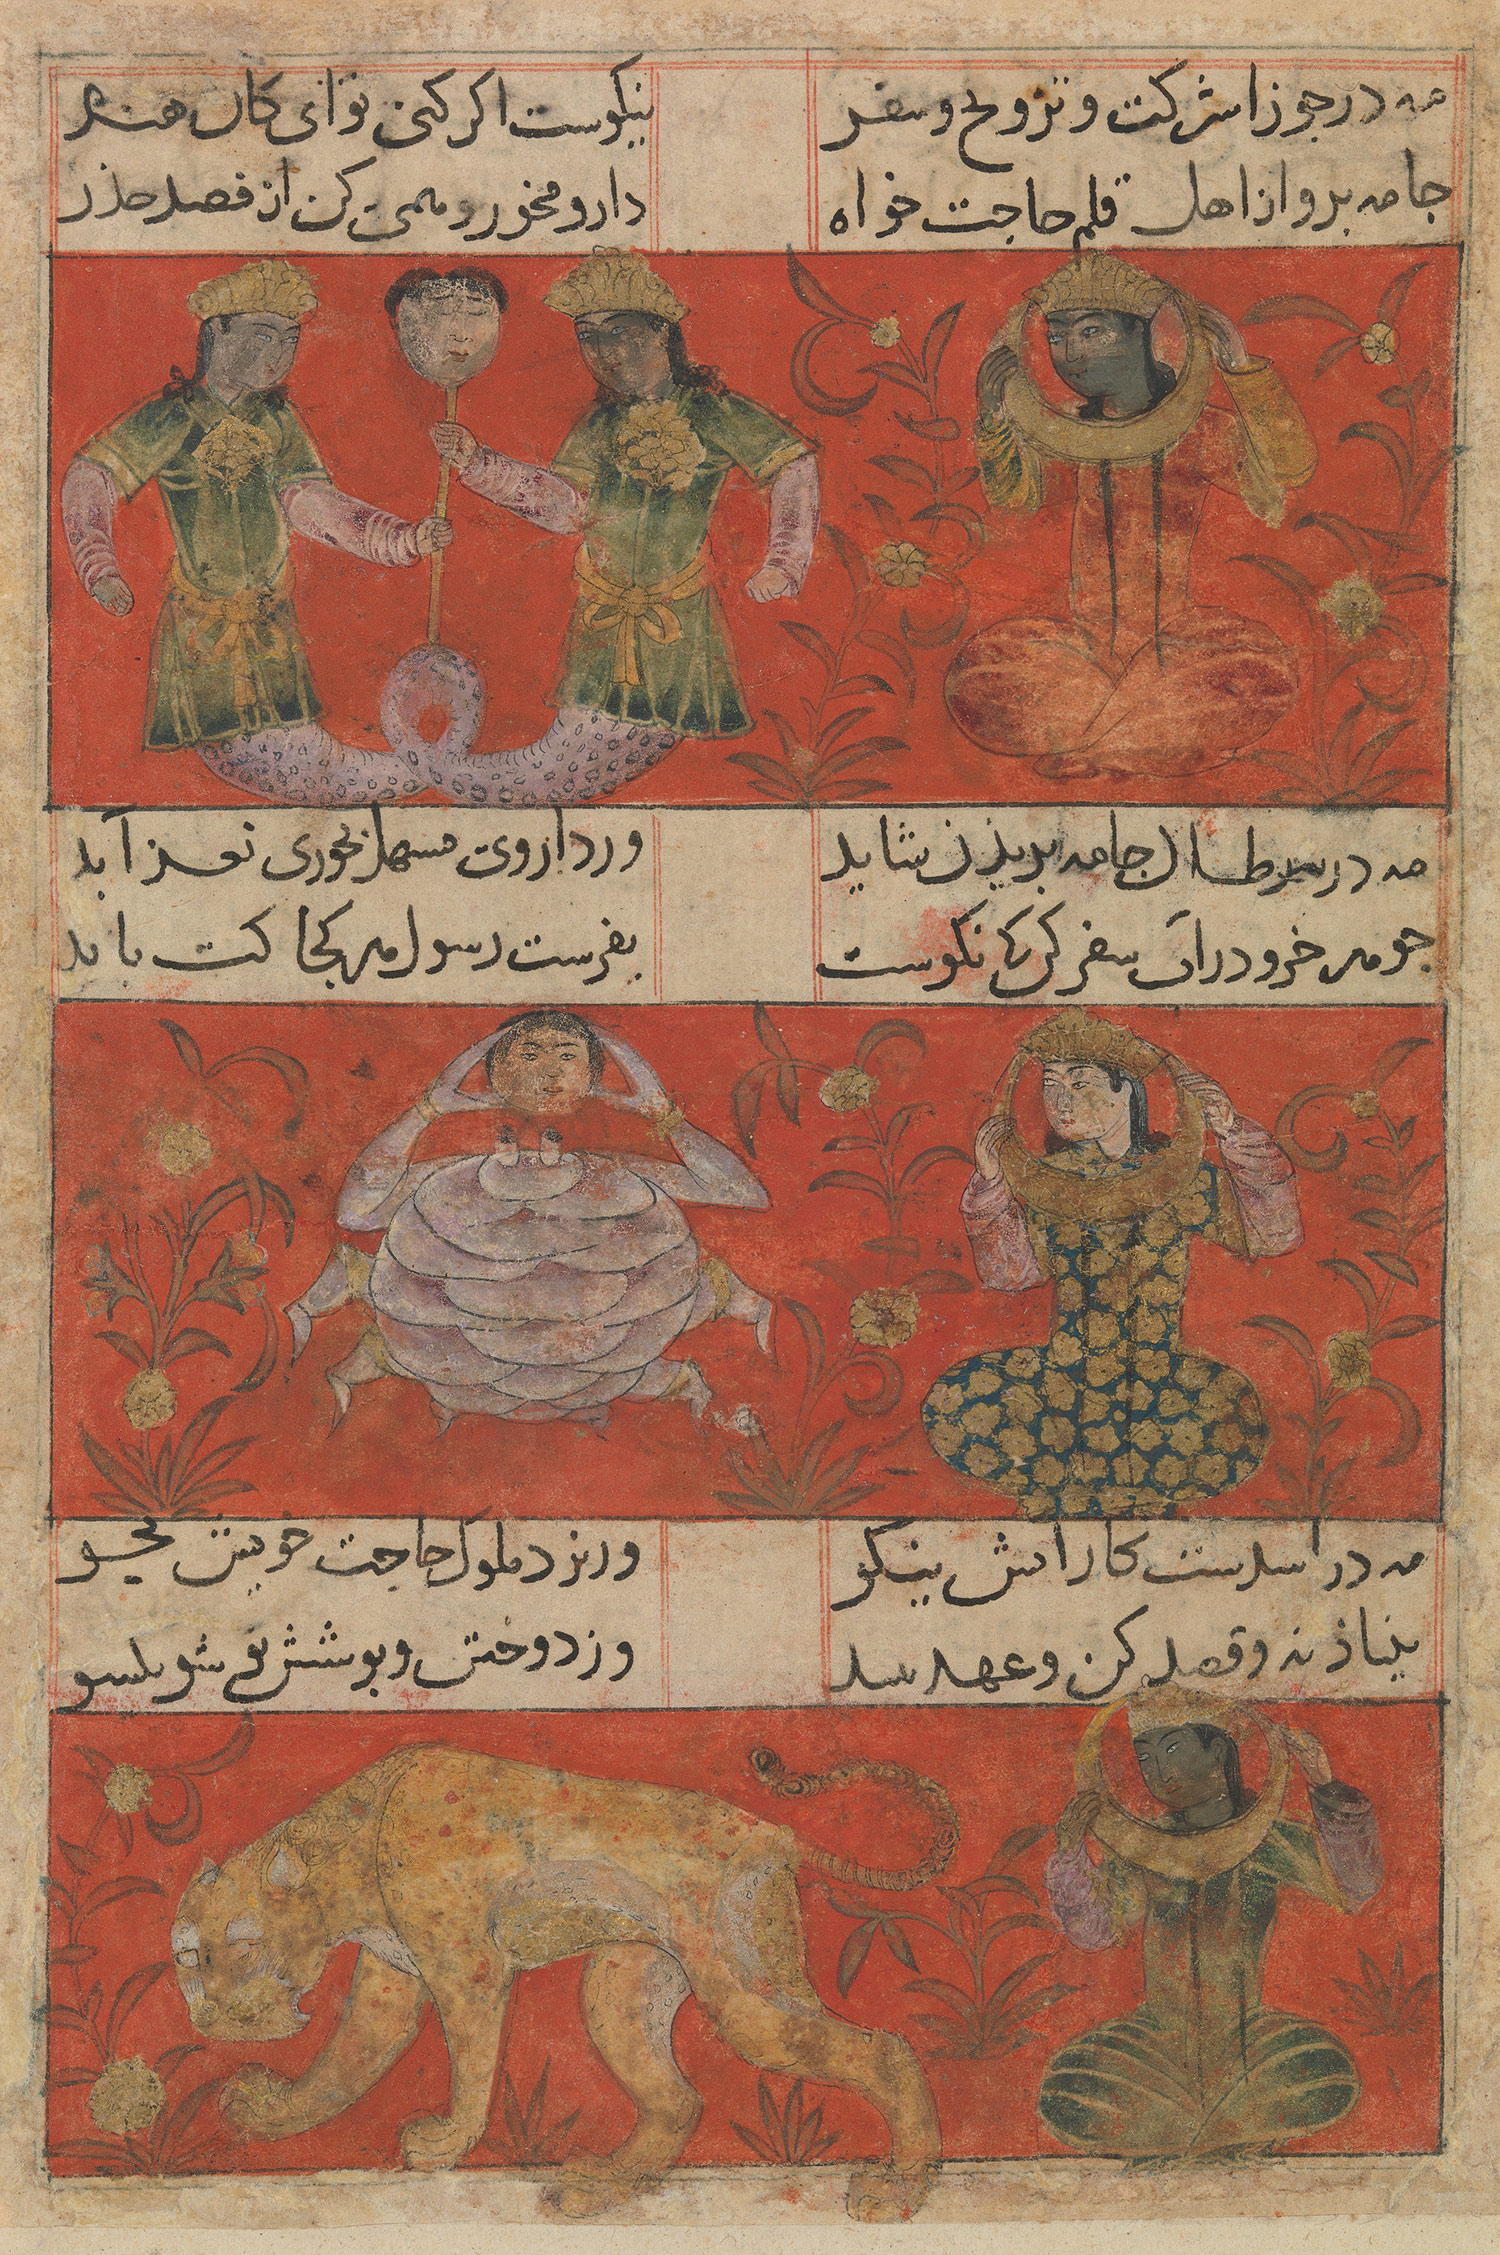 مه در جوزا شرکت و تزویج و سفر نیکوست اکر کنی تو ای کان هنر
جامه بر و از اهل قلم حاجت خواه دارو مخور و همی کن از فصد حذر
مه در سرطان جامه بریدن شاید ور داروی مسهل بخوری نغز آید
خرو در آب سفر کن که نکوست بفرست رسول هر کجا کت باید
مه در اسدست کار آتش نیکو ور نزد ملوک حاجت خویش بجو
بنیاد نه و فصد کن و عهد وز دوختن و بوشش نو شو یکسو